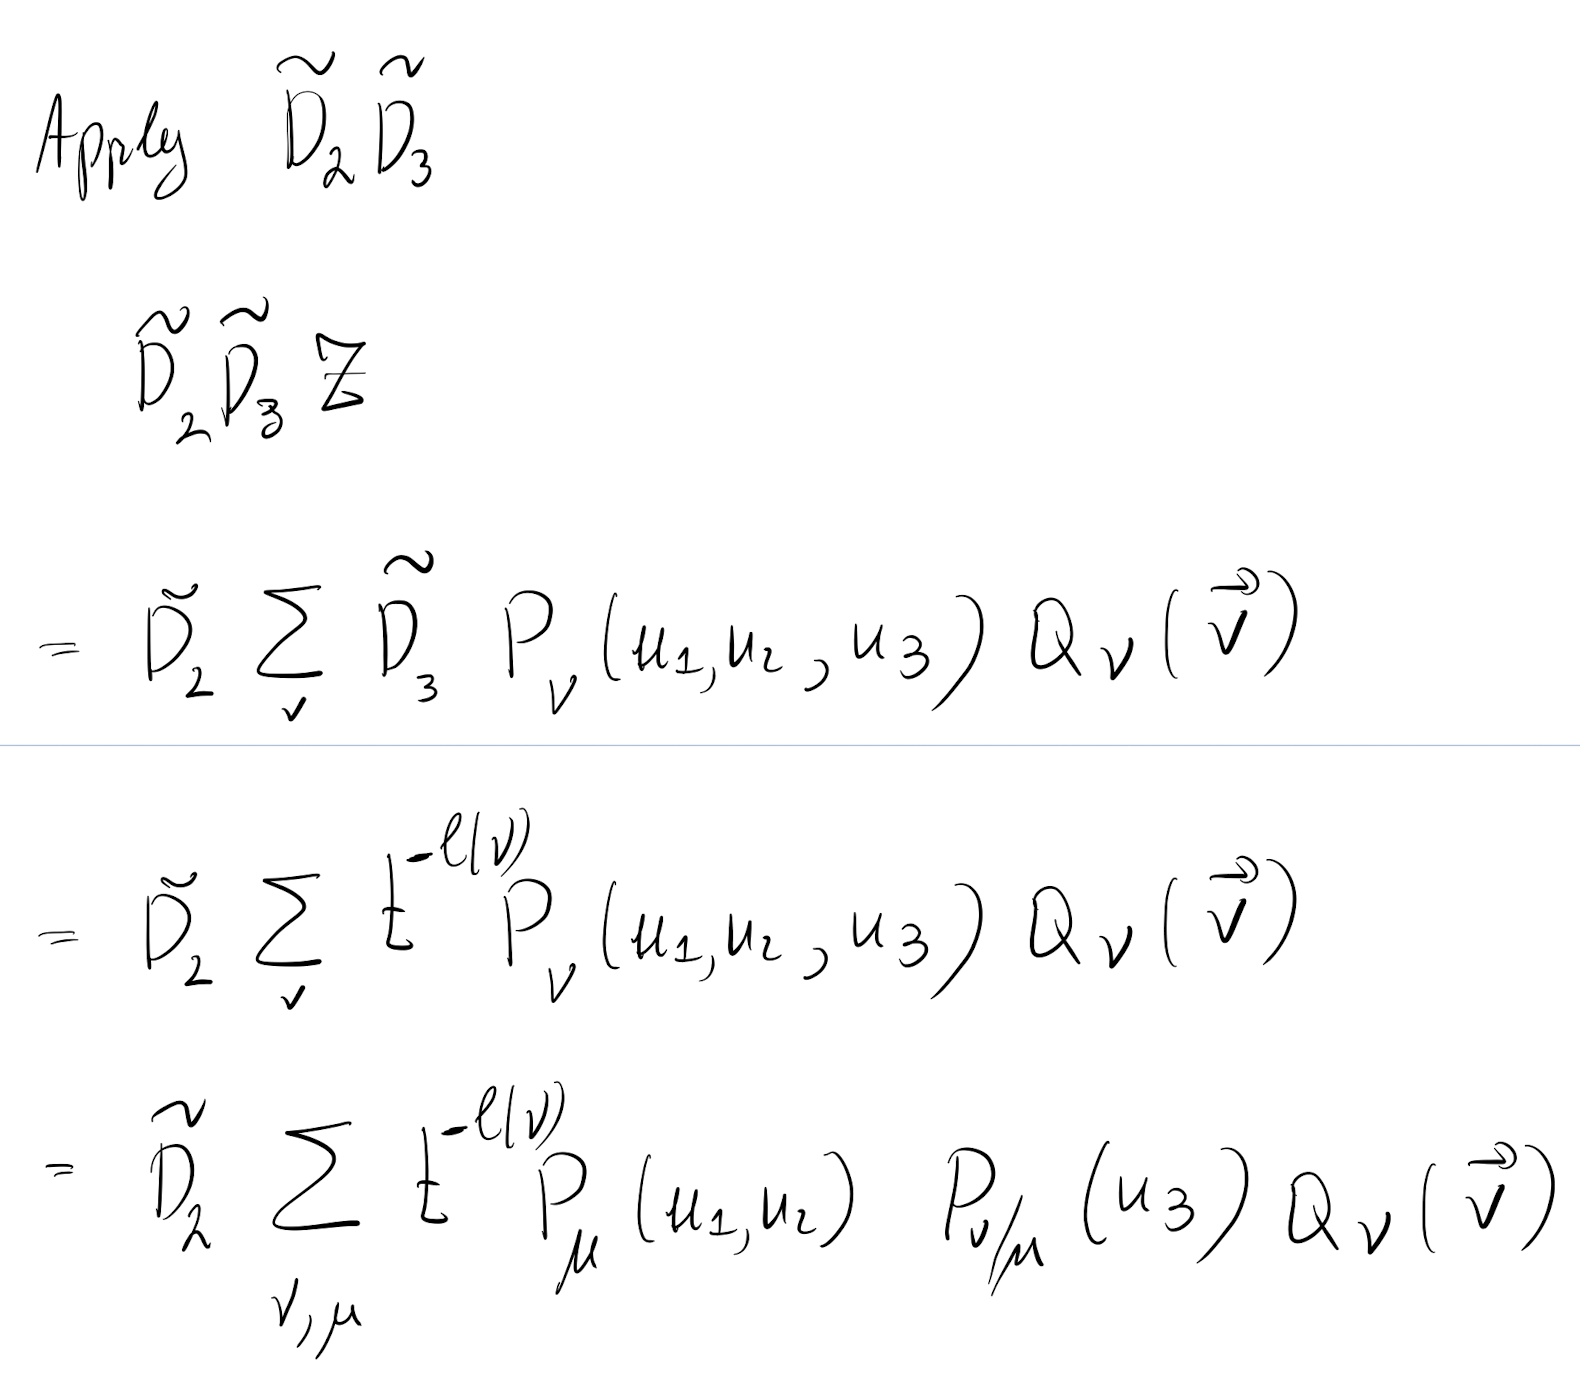 Apply D̃₂ D̃₃
D̃₂ D̃₃ Z
= D̃₂ Σ_ν D̃₃ P_ν (u₁, u₂, u₃) Q_ν (v⃗)
= D̃₂ Σ_ν t^{-ℓ(ν)} P_ν (u₁, u₂, u₃) Q_ν (v⃗)
= D̃₂ Σ_{ν,μ} t^{-ℓ(ν)} P_μ (u₁, u₂) P_{ν/μ} (u₃) Q_ν (v⃗)